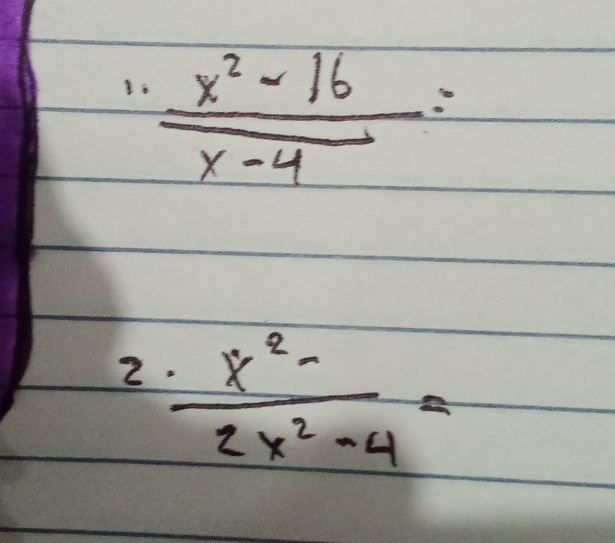 1. x² - 16 =
x - 4
2. x² - =
2x² - 4